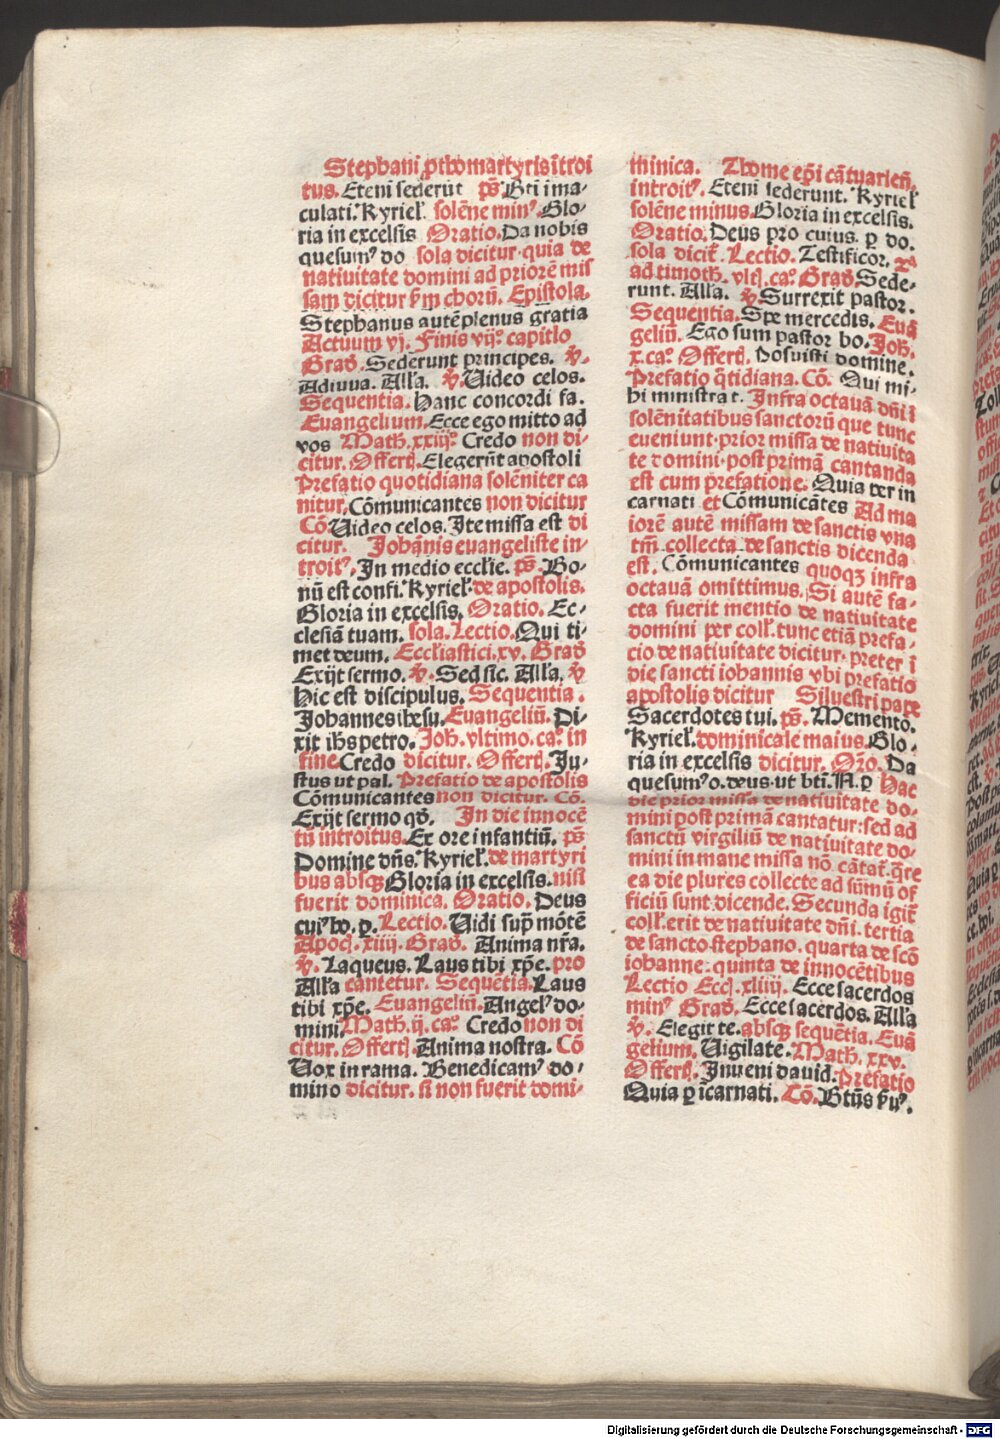 Stephani ꝓthomartyris ītroi
tus. Eteni sederūt p̄s Bti ima-
culati. Kyriel̄ solēne minꝰ Glo-
ria in excelsis Oratio. Da nobis
quesumꝰ do sola dicitur quia de
natiuitate domini ad priorē mis
sam dicitur ī’m chorū. Epistola.
Stephanus autē plenus gratia
Actuum vj. Finis vijº capitlo
Grad̄. Sederunt principes. ℣.
Adiuua. All'a. ℣. Uideo celos.
Sequentia. Hanc concordi fa.
Euangelium. Ecce ego mitto ad
vos Math̄. xxiijº Credo non di-
citur. Offert̄. Elegerūt apostoli
Prefatio quotidiana solēniter ca
nitur. Cōmunicantes non dicitur
Cō Uideo celos. Ite missa est di
citur. Johānis euangeliste in-
troitꝰ. In medio eccl'ie. p̄s. Bo-
nū est confi. Kyriel̄ de apostolis.
Gloria in excelsis. Oratio. Ec-
clesiā tuam. sola. Lectio. Qui ti-
met deum. Eccl'iastici. xv. Grad̄
Exijt sermo. ℣. Sed sic. All'a. ℣
Hic est discipulus. Sequentia.
Johannes ihesu. Euangeliū. Di-
xit ihs petro. Joh̄. vltimo. caº. in
fine Credo dicitur. Offert̄. Ju-
stus ut pal. Prefatio de apostolis
Cōmunicantes non dicitur. Cō.
Exijt sermo qd̄. In die innocē
tū introitus. Ex ore infantiū. p̄s
Domine dn̄s. Kyriel̄. de martyri
bus absqꝫ Gloria in excelsis. nisi
fuerit dominica. Oratio. Deus
cuiꝰ ho. ꝑ. Lectio. Uidi sup̄ mōtē
Apoc̄. xiiij. Grad̄. Anima nr̄a.
℣. Laqueus. Laus tibi xp̄e. pro
All'a cantetur. Sequētia. Laus
tibi xp̄e. Euangeliū. Angelꝰ do-
mini. Math̄. ij. caº. Credo non di
citur. Offert̄. Anima nostra. Cō
Uox in rama. Benedicamꝰ do-
mino dicitur. si non fuerit domi-
minica. Thome ep̄i cātuarien̄.
introitꝰ. Eteni sederunt. Kyriel̄
solēne minus. Gloria in excelsis.
Oratio. Deus pro cuius. ꝑ do.
sola dicit̄. Lectio. Testificor. ijª
ad timoth̄. vlt̄. caº. Grad̄ Sede-
runt. All'a. ℣. Surrexit pastor.
Sequentia. Spe mercedis. Euā
geliū. Ego sum pastor bo. Joh̄.
x. caº. Offert̄. Posuisti domine.
Prefatio q̄tidiana. Cō. Qui mi-
hi ministrat. Infra octauā dn̄i ī
solēnitatibus sanctorū que tunc
eueniunt. prior missa de natiuita
te domini. post primā cantanda
est cum prefatione. Quia per in
carnati et Cōmunicātes Ad ma
iorē autē missam de sanctis vna
tm̄ collecta de sanctis dicenda
est. Cōmunicantes quoqꝫ infra
octauā omittimus. Si autē fa-
cta fuerit mentio de natiuitate
domini per coll̄. tunc etiā prefa-
cio de natiuitate dicitur. preter ī
die sancti iohannis vbi prefatio
apostolis dicitur Siluestri pape
Sacerdotes tui. p̄s. Memento.
Kyriel̄. dominicale maius. Glo-
ria in excelsis dicitur. Or̄o. Da
quesumꝰ o. deus. ut bt̄i. N. ꝑ Hac
die prior missa de natiuitate do-
mini post primā cantatur: sed ad
sanctū virgiliū de natiuitate do-
mini in mane missa nō cātat̄. q̄re
ea die plures collecte ad sūmū of
ficiū sunt dicende. Secunda igit̄
coll̄. erit de natiuitate dn̄i. tertia
de sancto stephano. quarta de scō
iohanne. quinta de innocētibus
Lectio Eccl̄. xliiij. Ecce sacerdos
minꝰ Grad̄. Ecce sacerdos. All'a
℣. Elegit te. absqꝫ sequētia. Euā
gelium. Uigilate. Math̄. xxv.
Offert̄. Inueni dauid. Prefatio
Quia ꝑ icarnati. Cō. Bt̄us ẜuꝰ.
Digitalisierung gefördert durch die Deutsche Forschungsgemeinschaft - DFG